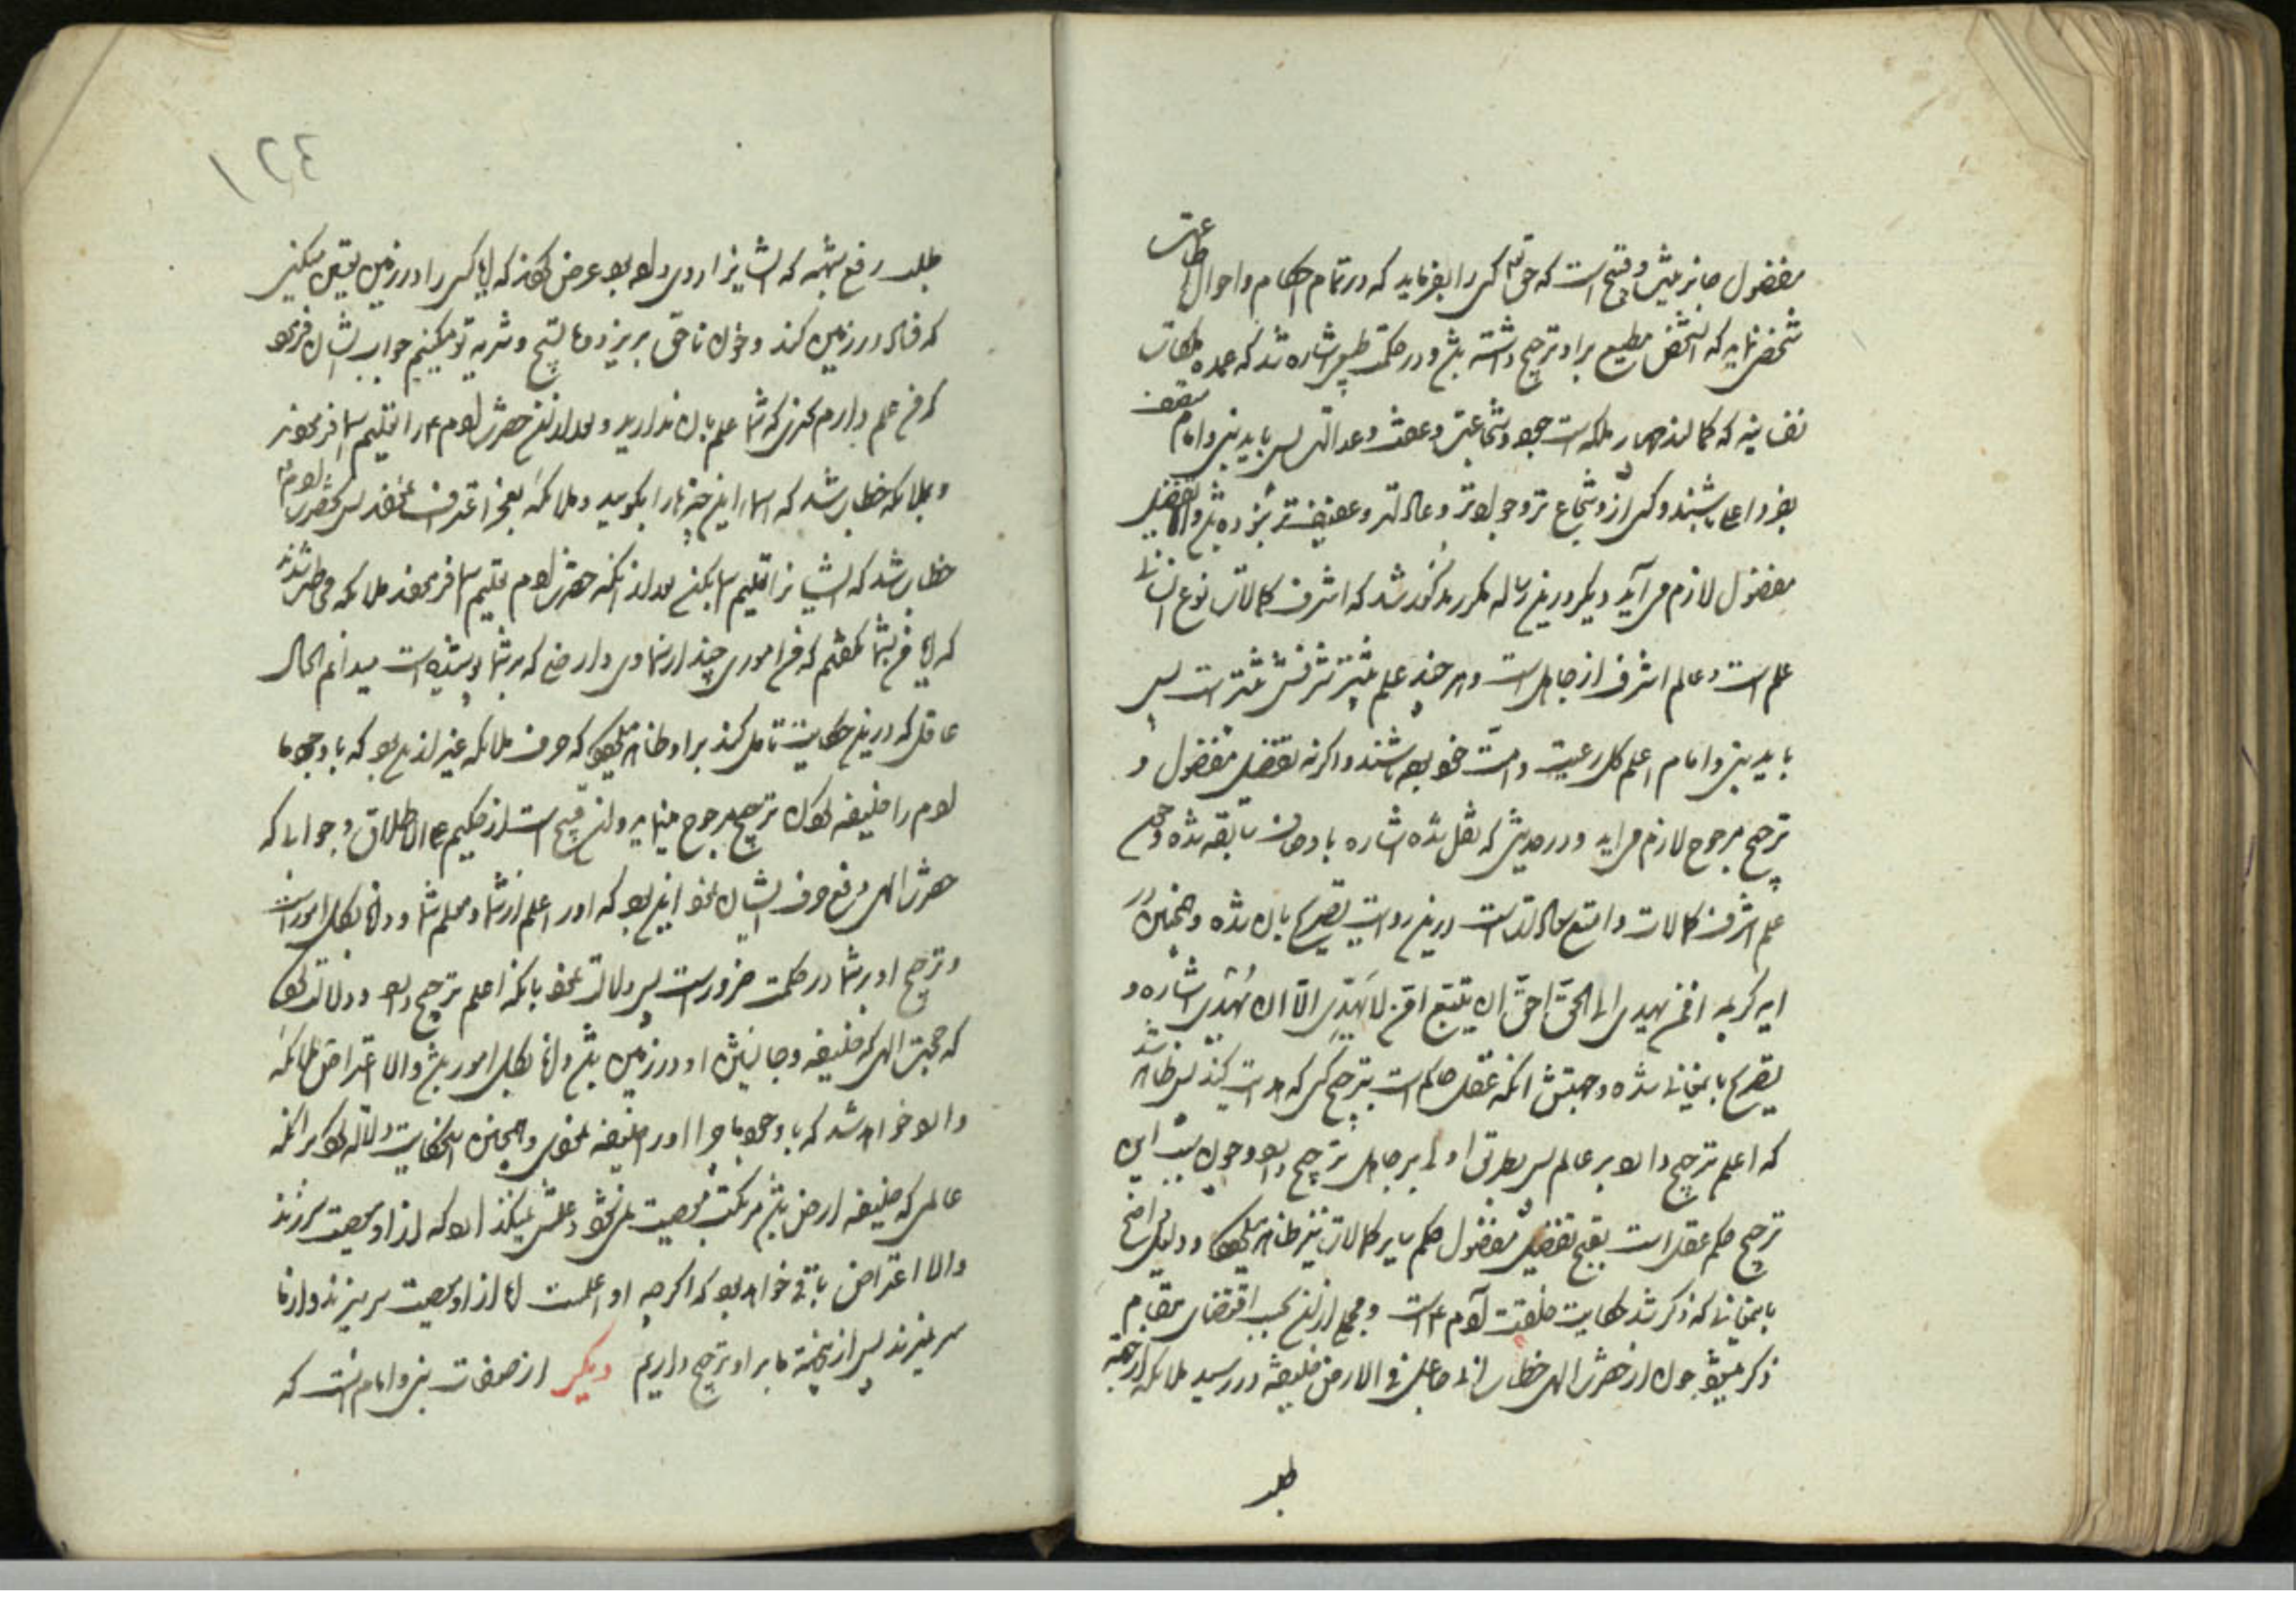 مفضول جایز نیست و قبیح است که حق تعالی کسی را بفرماید که در تمام احکام و احوال اطاعت
شخصی نماید که آن شخص مطیع بر او ترجیح داشته باشد و در حکمت طبیعی اشاره شد که عمده ملکات
نفسانیه که کمالند چهار ملکه است جود و شجاعت و عفت و عدالت پس باید نبی و امام متصف
بفرد اعلی باشند و کسی ازو شجاع تر وجوادتر و عادلتر و عفیف تر نبوده باشد والا تفضیل
مفضول لازم می آید دیگر درین رساله مکرر مذکور شد که اشرف کمالات نوع انسانی
علم است و عالم اشرف از جاهل است و هر چند علم بیشتر شرفش بیشتر است پس
باید نبی و امام اعلم کل رعیت و امت خود بوده باشند و اگر نه تفضیل مفضول و
ترجیح مرجوح لازم می اید و در حدیثی که نقل شده اشاره باوصاف سابقه شده و چون
علم اشرف کمالات است درین روایت تصریح بان شده و همچنین در
ایه کریمه افمن یهدی الی الحق احق ان یتبع امن لا یهدی الا ان یهدی اشاره و
تصریح باینمعانی شده و جهتش آنکه عقل حاکم است بترجیح کسی که هدایت کند پس ظاهر شد
که اعلم ترجیح دارد بر عالم پس بطریق اولی بر جاهل ترجیح دارد و چون سبب این
ترجیح حکم عقل است بقبح تفضیل مفضول حکم سایر کمالات نیز ظاهر میگردد و دلیل واضح
باینمعانی که ذکر شد حکایت خلقت آدم ع است و مجملی ازین بحسب اقتضای مقام
ذکر میشود چون از حضرت الهی خطاب انی جاعل فی الارض خلیفه در رسید ملائکه از جهة
طلب
١٢٤
طلب رفع شبهه که ایشانرا روی داده بود عرض کردند که ایا کسی را در زمین تعیین میکنی
که فساد در زمین کند و خون ناحق بریزد و ما تسبیح و تنزیه تو میکنیم جواب ایشان فرمود
که من علم دارم بچیزی که شما علم بان ندارید و بعد از ان حضرت آدم ع را تعلیم اسما فرمودند
و بملائکه خطاب شد که اسما این چیزها را بگویید و ملائکه بعجز اعتراف نمودند پس بحضرت آدم ع
خطاب شد که ایشانرا تعلیم اسما بکن بعد از انکه حضرت آدم تعلیم اسما فرمودند ملائکه مخاطب شدند
که ایا من بشما نگفتم که من اموری چند از سماوی و ارضی که بر شما پوشیده است میدانم الحال
عاقلی که درین حکایت تامل کند بر او ظاهر میگردد که حرف ملائکه غیر ازین نبود که با وجود ما
آدم را خلیفه کردن ترجیح مرجوح مینماید و این قبیح است از حکیم علی الاطلاق و جوابی که
حضرت الهی در دفع حرف ایشان نمود این بود که او اعلم از شما و معلم شما و دانا بکل امور است
و ترجیح او بر شما در حکمت ضرور است پس دلالت نمود بانکه اعلم ترجیح دارد و دلالت نمود
که حجت الهی که خلیفه و جانشین او در زمین باشد دانا بکل امور باشد و الا اعتراض ملائکه
وارد خواهد شد که با وجود ما چرا او را خلیفه نمودی و همچنین این حکایت دلالت نمود بر انکه
عالمی که خلیفه ارض باشد مرتکب معصیت نمی شود و علمش نمیگذارد که از او معصیت سرزند
والا اعتراض باقی خواهد بود که اگرچه او اعلمست اما از او معصیت سر میزند و از ما
سر نمیزند پس از این جهة ما بر او ترجیح داریم دیگر از صفات نبی و امام انست که